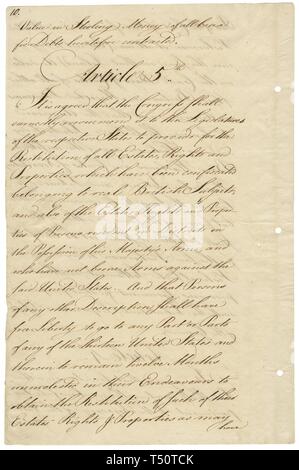 10.
Value in Sterling Money of all bona
fide Debts heretofore contracted.
Article 5th
It is agreed that the Congress shall
earnestly recommend it to the Legislatures
of the respective States to provide for the
Restitution of all Estates, Rights and
Properties which have been confiscated
belonging to real British Subjects,
and also of the Estates Rights and Proper-
ties of Persons resident in Districts in
the Possession of his Majesty's Arms, and
who have not borne Arms against the
said United States. And that Persons
of any other Description shall have
free Liberty to go to any Part or Parts
of any of the thirteen United States and
therein to remain twelve Months
unmolested in their Endeavours to
obtain the Restitution of such of their
Estates Rights & Properties as may
have
alamy
alamy
Image ID: T50TCK
www.alamy.com